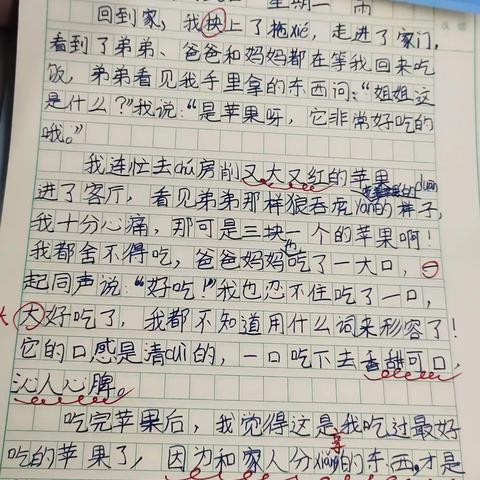 星期一 雨
回到家，我抰上了拖xié，走进了家门，
看到了弟弟、爸爸和妈妈都在等我回来吃
饭，弟弟看见我手里拿的东西问：“姐姐这
是什么？”我说：“是苹果呀，它非常好吃的
哦。”
我连忙去chú房削又大又红的苹果
进了客厅，看见弟弟那样狼吞虎yàn的样子，
我十分心痛，那可是三块一个的苹果啊！
我都舍不得吃，爸爸妈妈吃了一大口，一
起同声说：“好吃！”我也忍不住吃了一口，
大好吃了，我都不知道用什么词来形容了！
它的口感是清cuì的，一口吃下去香甜可口，
沁人心脾。
吃完苹果后，我觉得这是我吃过最好
吃的苹果了，因为和家人分xiǎng的东西，才是
享